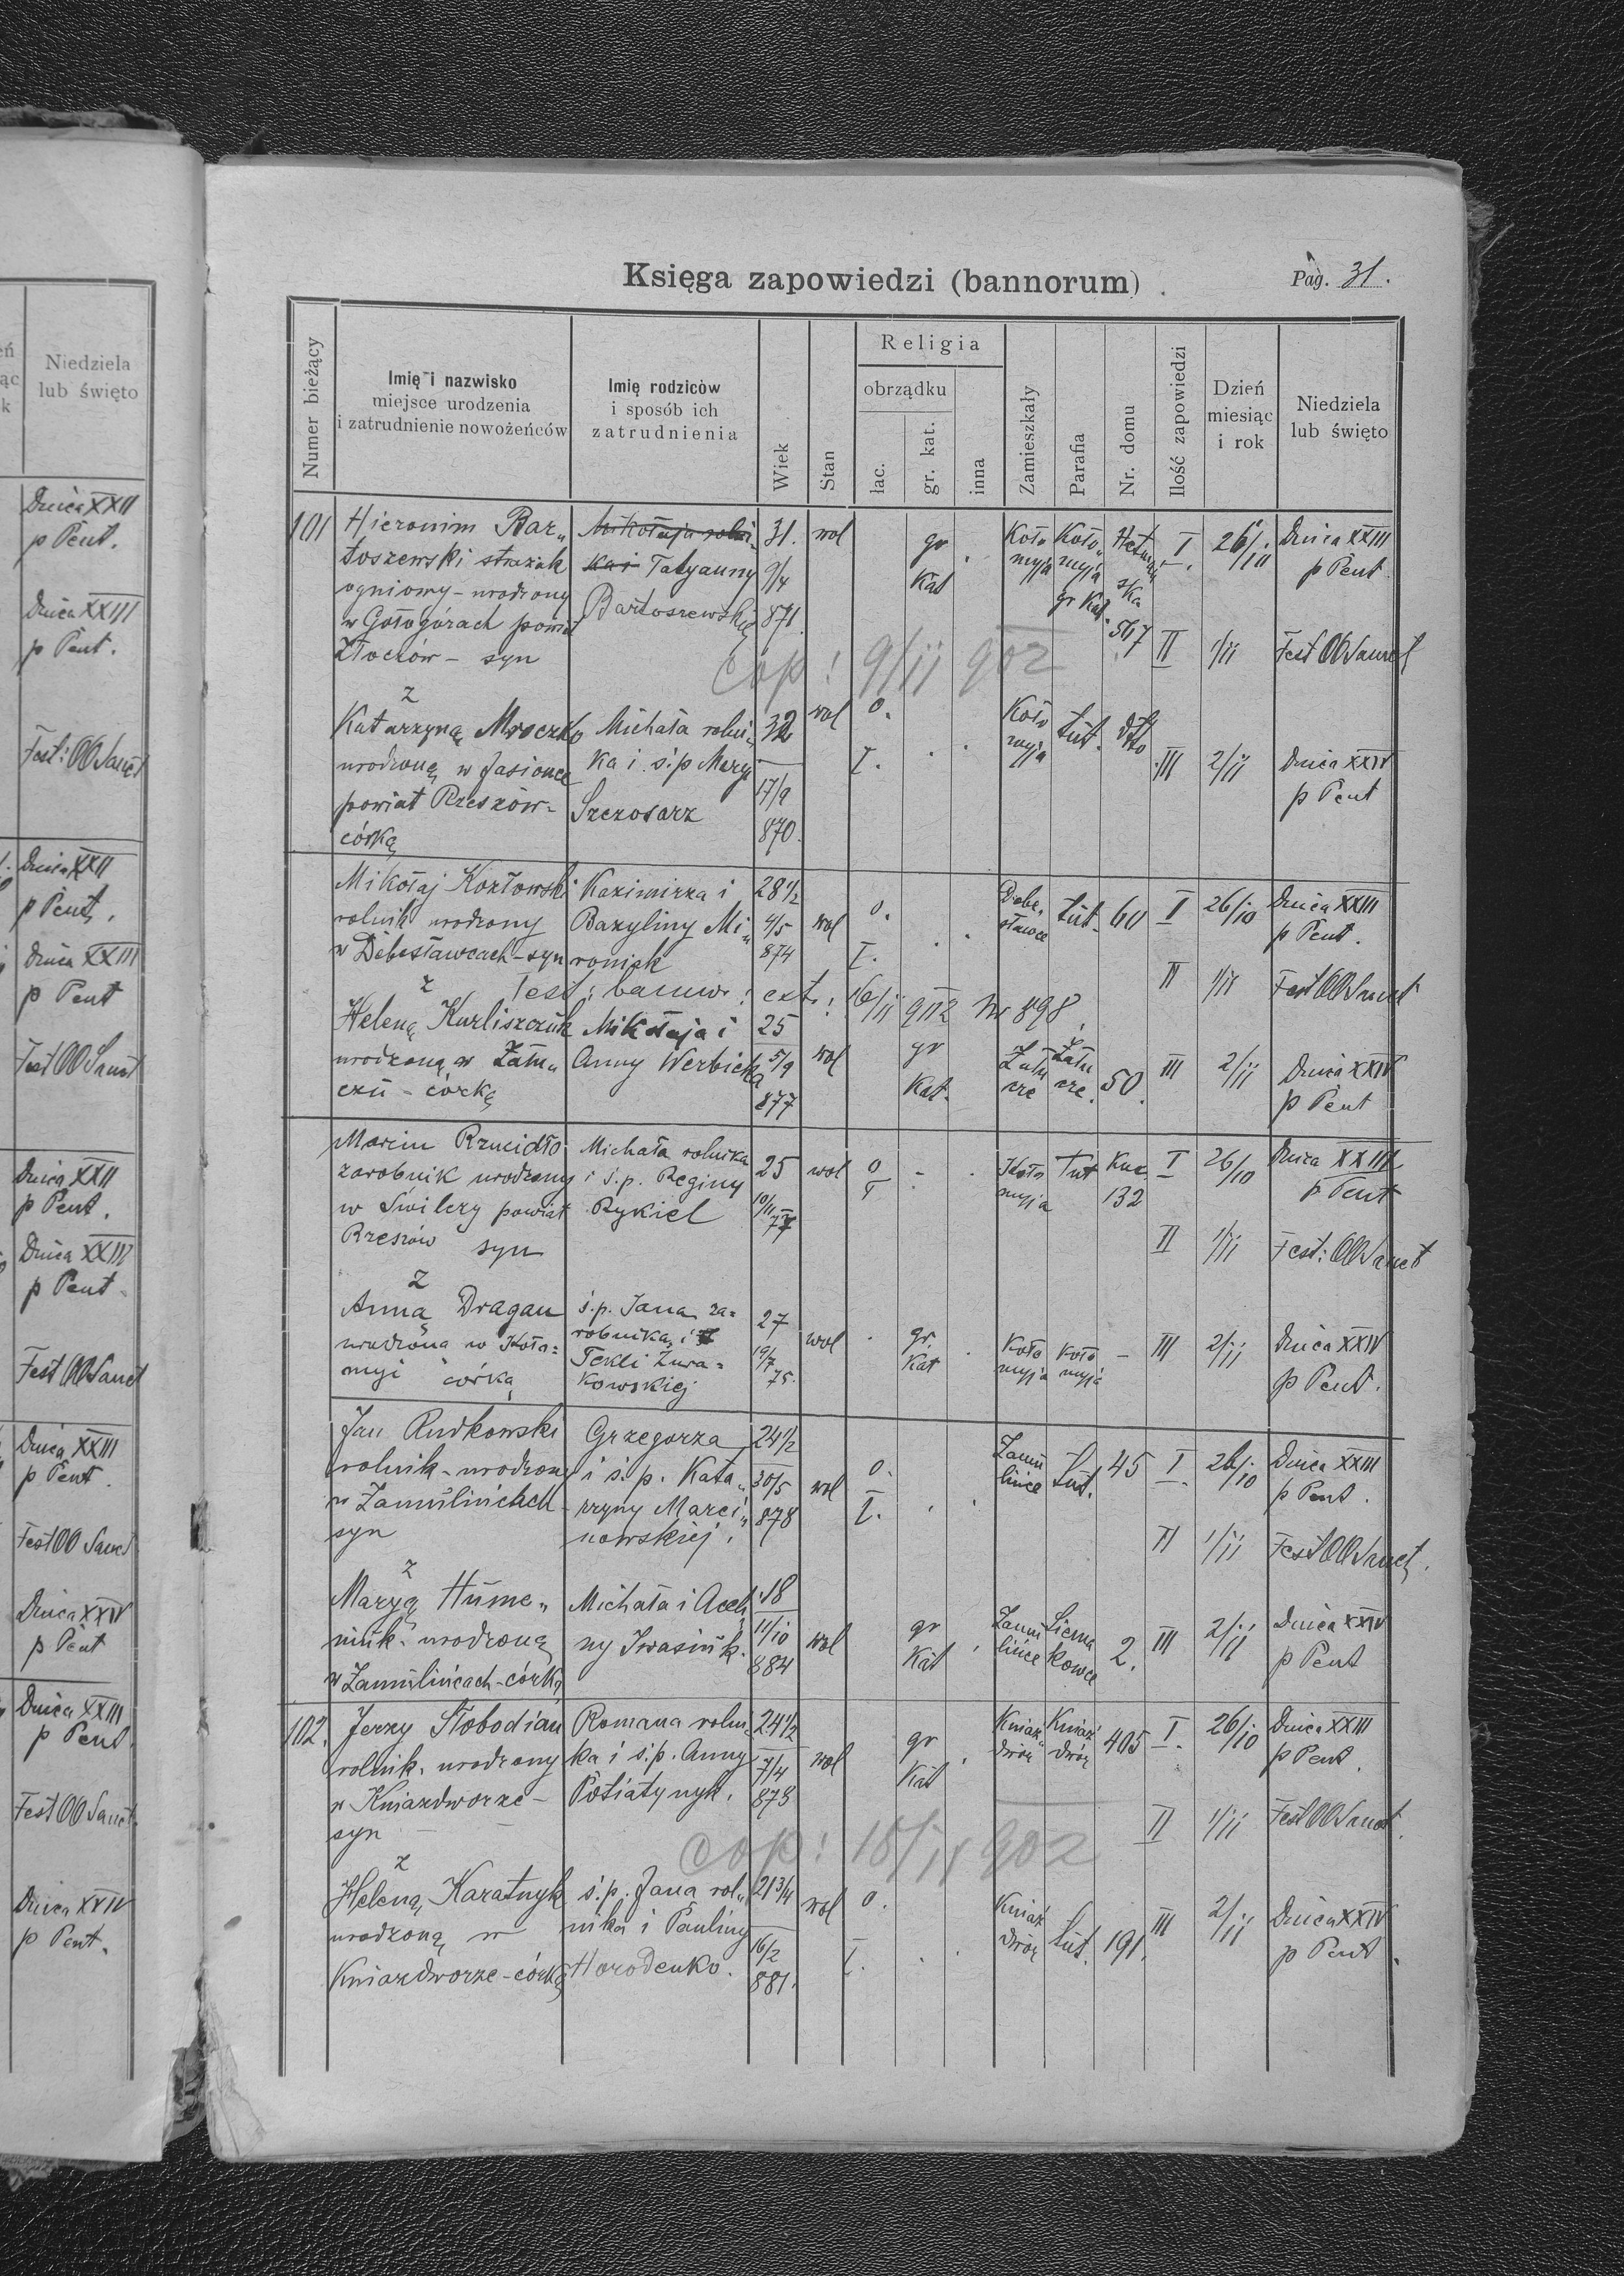 eń
ąc
k
Niedziela
lub święto
Dnica XXII
p Pent.
Dnica XXIII
p Pent.
Fest: OO Sanct
Dnica XXII
p Pent.
Dnica XXIII
p Pent
Fest OO Sanct
Dnica XXII
p Pent.
Dnica XXIII
p Pent
Fest OO Sanct
Dnica XXIII
p Pent.
Fest OO Sanct
Dnica XXIV
p Pent
Dnica XXIII
p Pent.
Fest OO Sanct.
Dnica XXIV
p Pent.
Księga zapowiedzi (bannorum)
Pag. 31.
Numer bieżący
Imię i nazwisko
miejsce urodzenia
i zatrudnienie nowożeńców
Imię rodziców
i sposób ich
zatrudnienia
Wiek
Stan
Religia
obrządku
łac.
gr. kat.
inna
Zamieszkały
Parafia
Nr. domu
Ilość zapowiedzi
Dzień
miesiąc
i rok
Niedziela
lub święto
101 Hieronim Bar„
toszewski strażak
ogniowy - urodzony
w Gołogórach powiat
Złoczów - syn
Mikołaja rolni-
ka i Tatyanny
Bartoszewskiej
31.
9/4
871.
wol
gr
Kat
Koło
myja
Koło„
myja
gr Kat.
ska
547
I. 26/10 Dnica XXIII
p Pent.
II 1/11 Fest OO Sanct
cop: 9/11 902
z
Katarzyną Mroczko
urodzoną w Jasionce
powiat Rzeszów-
córką
Michała rolni„
ka i ś.p Maryi
Szczosarz
32
17/9
870.
wol
o.
ł.
Koło
myja
tut.
dtto
III 2/11 Dnica XXIV
p Pent
Mikołaj Kozłowski
rolnik urodzony
w Debesławcach - syn
Kazimirza i
Bazyliny Mi„
roniak
28 1/2
4/5
874
wol
o.
ł.
Debe„
sławce
tut. 60 I 26/10 Dnica XXIII
p Pent.
II 1/11 Fest OO Sanct
z Test: bannor: ext: 16/11 902 Nr 898.
Heleną Kurliszczuk
urodzoną w Zału„
czu - córką
Mikołaja i
Anny Werbicka
25
5/9
877
wol
gr
Kat.
Zału
cze
Zału
cze.
50.
III 2/11 Dnica XXIV
p Pent
Marcin Rzucidło
zarobnik urodzony
w Świlczy powiat
Rzeszów syn
Michała rolnika
i ś.p. Reginy
Rykiel
25
10/11
77
wol
o
ł
Koło
myja
Tut
132
I 26/10 Dnica XXIII
p Pent
II 1/11 Fest: OO Sanct
z
Anną Dragan
urodzoną w Koło=
myi córką
ś.p. Jana za=
robnika i
Tekli Żura=
kowskiej
27
19/7
75.
wol
gr
Kat
Koło
myja
Koło
myja
–
III 2/11 Dnica XXIV
p Pent.
Jan Rudkowski
rolnik - urodzony
w Zamulińcach -
syn
Grzegorza
i ś.p. Kata„
rzyny Marci„
nowskiej.
24 1/2
30/5
878
wol
o.
ł.
Zamu
lińce
tut. 45 I. 26/10 Dnica XXIII
p Pent.
II 1/11 Fest OO Sanct.
z
Maryą Hume„
niuk. urodzoną
w Zamulińcach - córką
Michała i Aceh
ny Iwasiuk.
18
11/10
884
wol
gr
Kat
Zamu
lińce
Siema
kowce
2.
III 2/11 Dnica XXIV
p Pent
102. Jerzy Słobodian
rolnik. urodzony
w Kniazdworze -
syn
Romana rolni-
ka i ś.p. Anny
Potiatynyk.
24 1/2
7/4
878
wol
gr
Kat
Kniaź„
dwór
Kniaź
dwór
405 I. 26/10 Dnica XXIII
p Pent.
II 1/11 Fest OO Sanct.
cop: 18/11 902
z
Heleną Karatnyk
urodzoną w
Kniazdworze - córką
ś.p. Jana rol„
nika i Pauliny
Horodenko.
21 3/4
16/2
881.
wol
o.
ł.
Kniaź
dwór
tut. 191.
III 2/11 Dnica XXIV
p Pent.